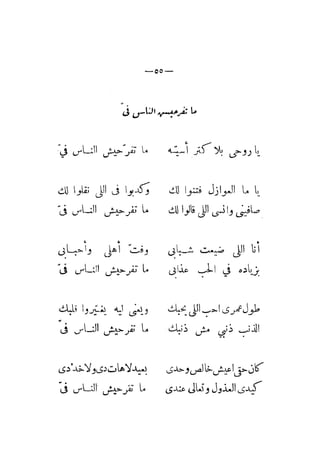 — ٥٥ —
ما تفرحيش الناس فىّ
يا روحى بلا كتر أسيّـه ما تفرّحيش النـاس فىّ
يا ما العوازل فتنوا لك وكدبوا فى اللى نقلوا لك
صافينى وانسى اللى قالوا لك ما تفرحيش النـاس فىّ
أنا اللى ضيعت شـبابى وفتّ أهلى وأحبـابى
بزياده فى الحب عذابى ما تفرحيش النـاس فىّ
طول عمرى احب اللى يحبك ويعنى ليه يغيّروا قلبك
الذنب ذنبى مش ذنبك ما تفرحيش النـاس فىّ
كان حتى اعيش خالص وحدى بعيد لا هات دى ولا خد دى
كيدى العذول وتعالى عندى ما تفرحيش النـاس فىّ